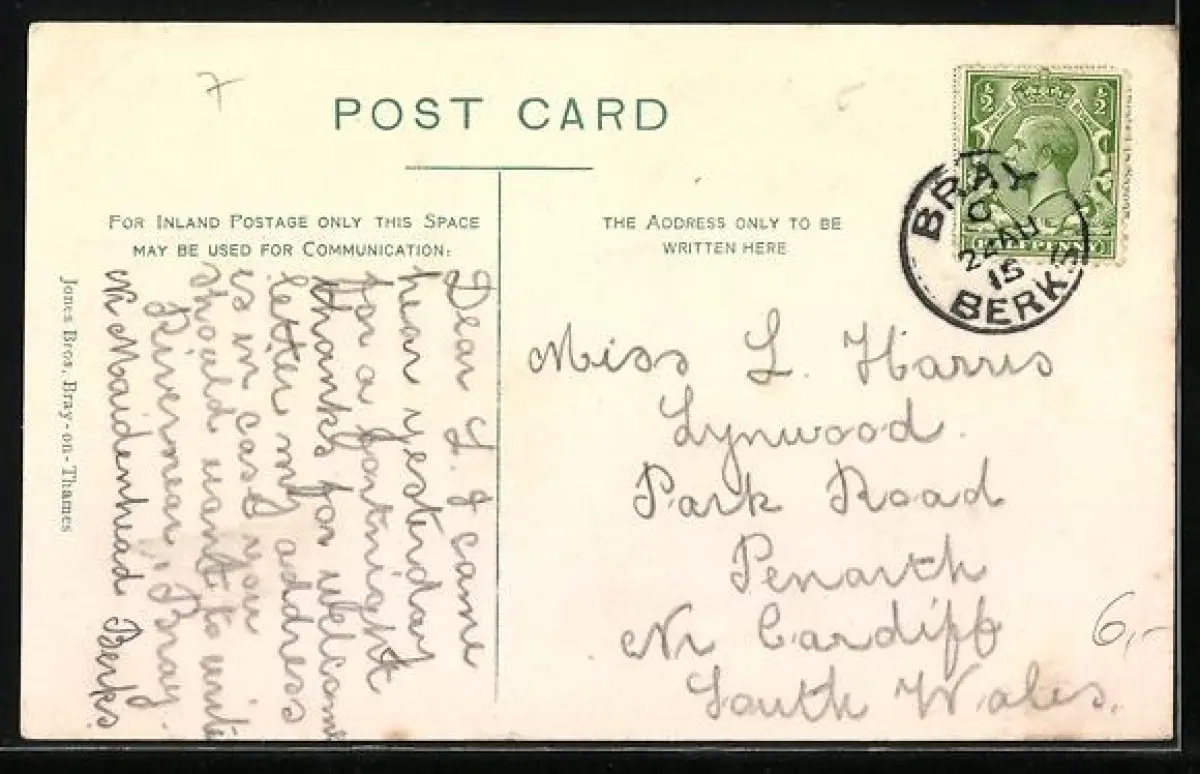 7
POST CARD
FOR INLAND POSTAGE ONLY THIS SPACE
MAY BE USED FOR COMMUNICATION:
THE ADDRESS ONLY TO BE
WRITTEN HERE
½ ½
HALFPENNY
BRAY
C
22 AU
15
BERKS
Dear L. I came
hear yesterday
for a fortnight
thanks for welcome
letter my address
is in case you
should want to write
Rivermear, Bray.
Nr Maidenhead Berks.
Jones Bros, Bray-on-Thames
Miss L. Harris
Lynwood.
Park Road
Penarth
Nr Cardiff
South Wales.
6,-